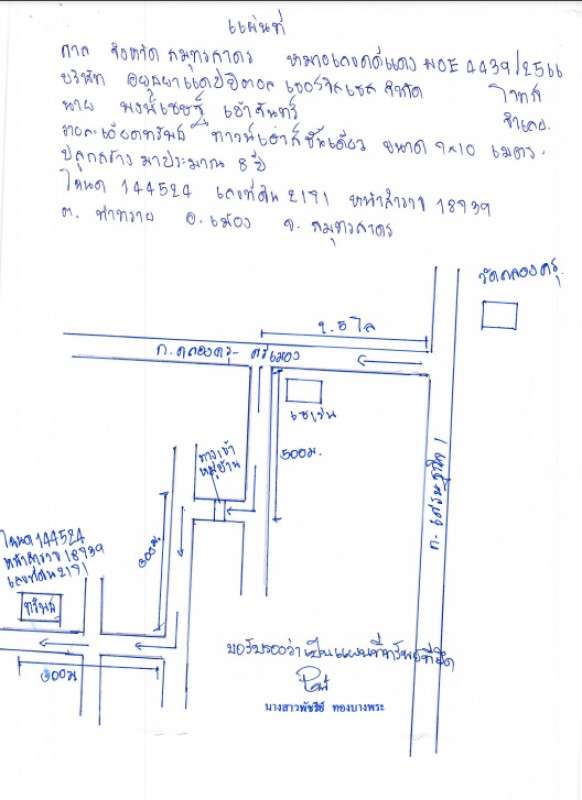 แผนที่
ศาล จังหวัด สมุทรสาคร หมายเลขคดีแดง ผบE 4439/2566
บริษัท อยุธยาแคปปิตอล เซอร์วิสเซส จำกัด โจทก์
นาย พงษ์เชษฐ์ เข้าจันทร์ จำเลย
รายละเอียดทรัพย์ ทาวน์เฮ้าส์ชั้นเดียว ขนาด 7×10 เมตร
ปลูกสร้างมาประมาณ 8 ปี
โฉนด 144524 เลขที่ดิน 2171 หน้าสำรวจ 18739
ต. ท่าทราย อ. เมือง จ. สมุทรสาคร
วัดคลองครุ
1.5 โล
ถ. คลองครุ - ศรีเมือง
เซเว่น
500ม.
ถ. เศรษฐกิจ 1
ทางเข้า
หมู่บ้าน
300ม.
โฉนด 144524
หน้าสำรวจ 18739
เลขที่ดิน 2171
ทรัพย์
300ม
ขอรับรองว่าเป็นแผนที่ทรัพย์ที่ยึด
นางสาวพัชรีย์ ทองบางพระ